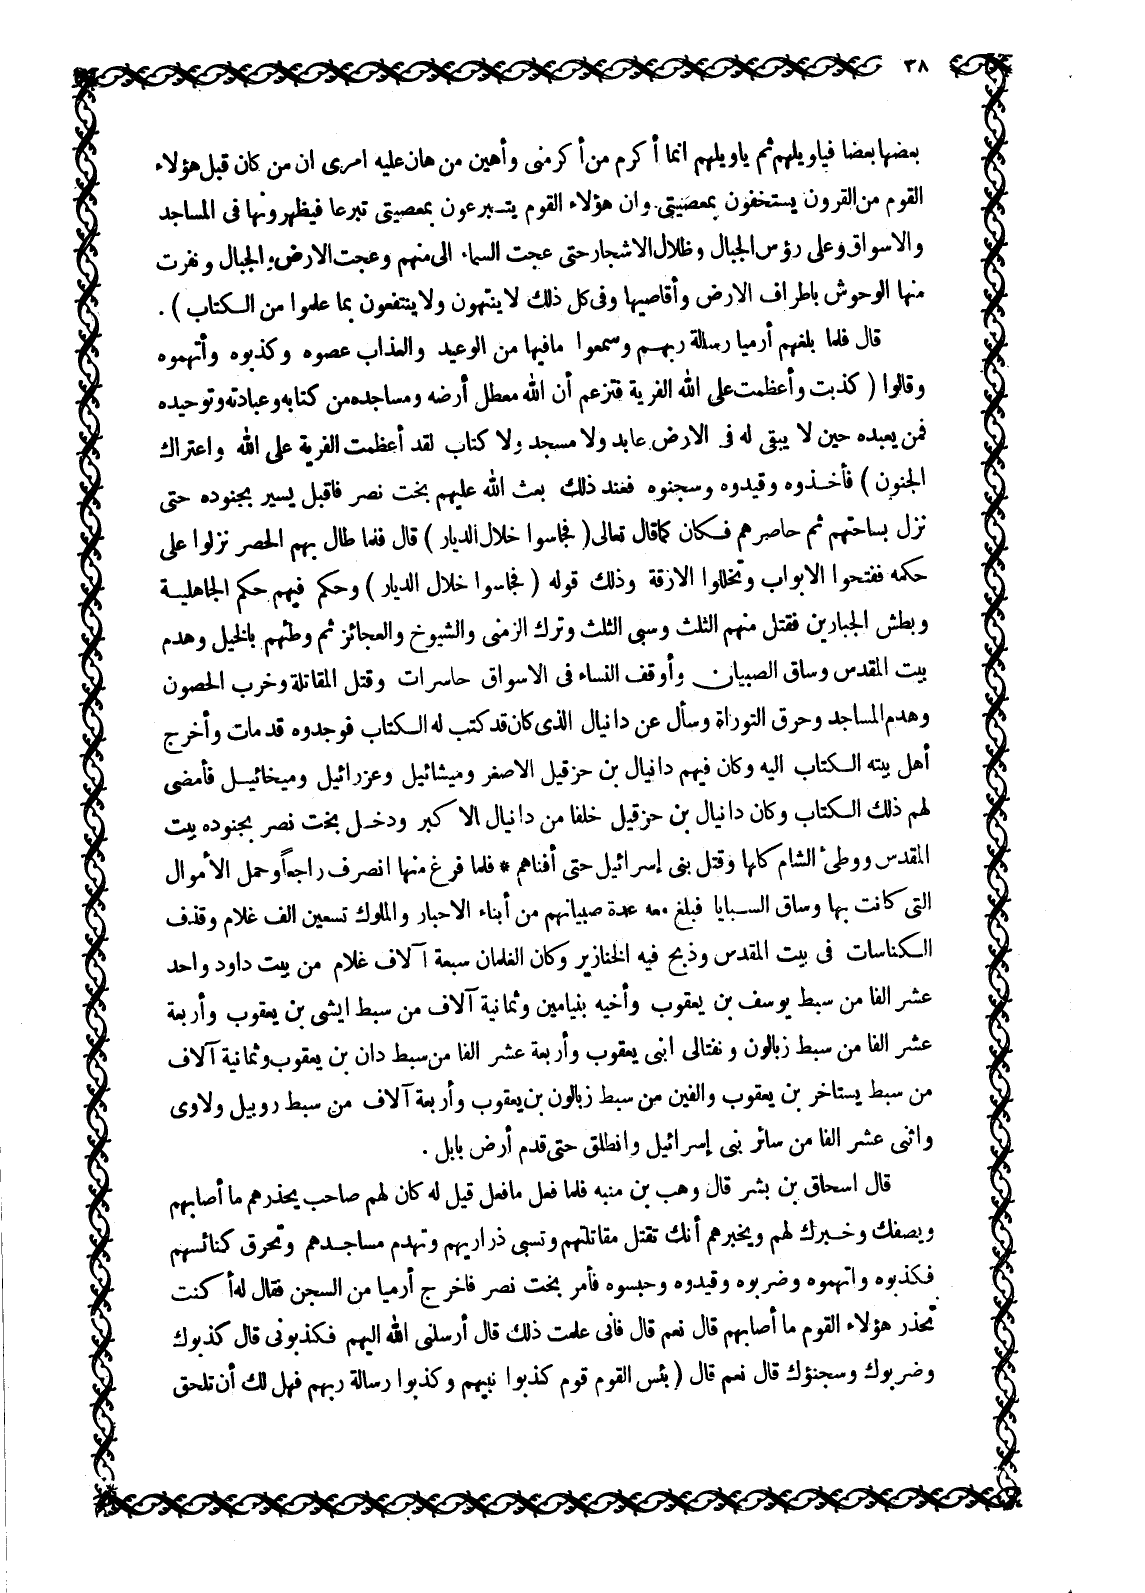 ٣٨
بعضها بعضا فياويلهم ثم ياويلهم انما أكرم من أكرمنى وأهين من هان عليه امرى ان من كان قبل هؤلاء
القوم من القرون يستخفون بمعصيتى وان هؤلاء القوم يتبرعون بمعصيتى تبرعا فيظهرونها فى المساجد
والاسواق وعلى رؤس الجبال وظلال الاشجار حتى عجت السماء الى منهم وعجت الارض والجبال ونفرت
منها الوحوش باطراف الارض وأقاصيها وفى كل ذلك لاينتهون ولاينتفعون بما علموا من الكتاب ) .
قال فلما بلغهم أرميا رسالة ربهم وسمعوا مافيها من الوعيد والعذاب عصوه وكذبوه وأتهموه
وقالوا ( كذبت وأعظمت على الله الفرية فتزعم أن الله معطل أرضه ومساجده من كتابه وعبادته وتوحيده
فمن يعبده حين لا يبقى له فى الارض عابد ولا مسجد ولا كتاب لقد أعظمت الفرية على الله واعتراك
الجنون ) فأخذوه وقيدوه وسجنوه فعند ذلك بعث الله عليهم بخت نصر فاقبل يسير بجنوده حتى
نزل بساحتهم ثم حاصرهم فكان كما قال تعالى ( فجاسوا خلال الديار ) قال فلما طال بهم الحصر نزلوا على
حكمه ففتحوا الابواب وتخللوا الازقة وذلك قوله ( فجاسوا خلال الديار ) وحكم فيهم حكم الجاهلية
وبطش الجبارين فقتل منهم الثلث وسبى الثلث وترك الزمنى والشيوخ والعجائز ثم وطئهم بالخيل وهدم
بيت المقدس وساق الصبيان وأوقف النساء فى الاسواق حاسرات وقتل المقاتلة وخرب الحصون
وهدم المساجد وحرق التوراة وسأل عن دانيال الذى كان قد كتب له الكتاب فوجدوه قد مات وأخرج
أهل بيته الكتاب اليه وكان فيهم دانيال بن حزقيل الاصغر وميشائيل وعزرائيل وميخائيل فأمضى
لهم ذلك الكتاب وكان دانيال بن حزقيل خلفا من دانيال الاكبر ودخل بخت نصر بجنوده بيت
المقدس ووطئ الشام كلها وقتل بنى إسرائيل حتى أفناهم * فلما فرغ منها انصرف راجعاً وحمل الأموال
التى كانت بها وساق السبايا فبلغ معه عدة صبيانهم من أبناء الاحبار والملوك تسعين الف غلام وقذف
الكناسات فى بيت المقدس وذبح فيه الخنازير وكان الغلمان سبعة آلاف غلام من بيت داود واحد
عشر الفا من سبط يوسف بن يعقوب وأخيه بنيامين وثمانية آلاف من سبط ايشى بن يعقوب وأربعة
عشر الفا من سبط زبالون ونفتالى ابنى يعقوب وأربعة عشر الفا من سبط دان بن يعقوب وثمانية آلاف
من سبط يستاخر بن يعقوب والفين من سبط زبالون بن يعقوب وأربعة آلاف من سبط روبيل ولاوى
واثنى عشر الفا من سائر بنى إسرائيل وانطلق حتى قدم أرض بابل .
قال اسحاق بن بشر قال وهب بن منبه فلما فعل مافعل قيل له كان لهم صاحب يحذرهم ما أصابهم
ويصفك وخبرك لهم ويخبرهم أنك تقتل مقاتلتهم وتسبى ذراريهم وتهدم مساجدهم وتحرق كنائسهم
فكذبوه واتهموه وضربوه وقيدوه وحبسوه فأمر بخت نصر فاخرج أرميا من السجن فقال له أكنت
تحذر هؤلاء القوم ما أصابهم قال نعم قال فانى علمت ذلك قال أرسلنى الله اليهم فكذبونى قال كذبوك
وضربوك وسجنؤك قال نعم قال ( بئس القوم قوم كذبوا نبيهم وكذبوا رسالة ربهم فهل لك أن تلحق